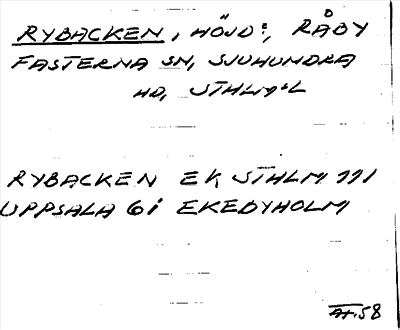 RYBACKEN, HÖJD:, RÅBY
FASTERNA SN, SJUHUNDRA
HD, STHLMS L
RYBACKEN EK STHLM 111
UPPSALA 6i EKEBYHOLM
AH.58